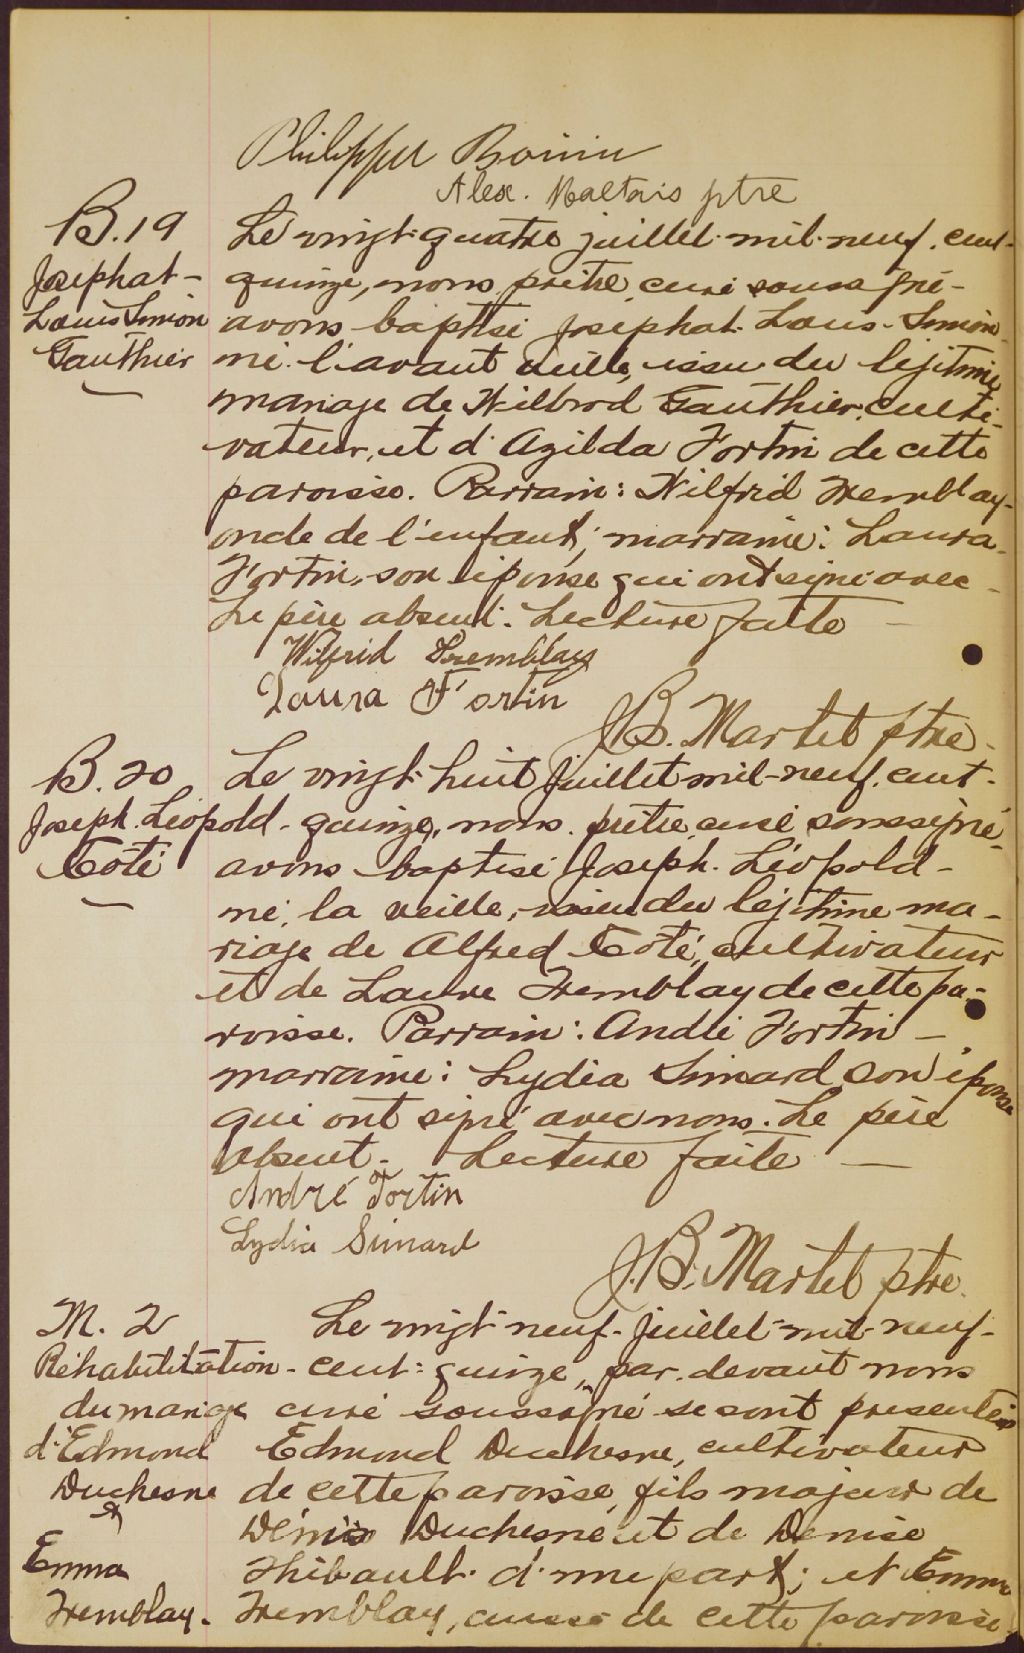 Philippe Boivin
Alex. Maltais ptre
B. 19
Josephat-
Louis Simon
Gauthier
Le vingt-quatre juillet mil-neuf-cent-
quinze, nous prêtre curé soussigné-
avons baptisé Josephat-Louis-Simon
né l'avant veille, issu du légitime
mariage de Wilbrod Gauthier, culti-
vateur, et d'Azilda Fortin de cette
paroisse. Parrain: Wilfrid Tremblay-
oncle de l'enfant; marraine: Laura
Fortin, son épouse qui ont signé avec
Le père absent. Lecture faite
Wilfrid Tremblay
Laura Fortin
J.B. Martel ptre
B. 20
Joseph. Léopold-
Coté
Le vingt-huit Juillet mil-neuf-cent-
quinze, nous prêtre curé soussigné-
avons baptisé Joseph. Léopold-
né, la veille, issu du légitime ma-
riage de Alfred Coté, cultivateur
et de Laure Tremblay de cette pa-
roisse. Parrain: André Fortin
marraine: Lydia Simard son épouse
qui ont signé avec nous. Le père
absent. Lecture faite
André Fortin
Lydia Simard
J.B. Martel ptre.
M. 2
Réhabilitation-
du mariage
d'Edmond
Duchesne
&
Emma
Tremblay.
Le vingt-neuf-Juillet-mil-neuf-
cent-quinze, par devant nous
curé soussigné se sont presentés
Edmond Duchesne, cultivateur
de cette paroisse, fils majeur de
Démis Duchesne et de Denise
Thibault d'une part; et Emma
Tremblay, aussi de cette paroisse